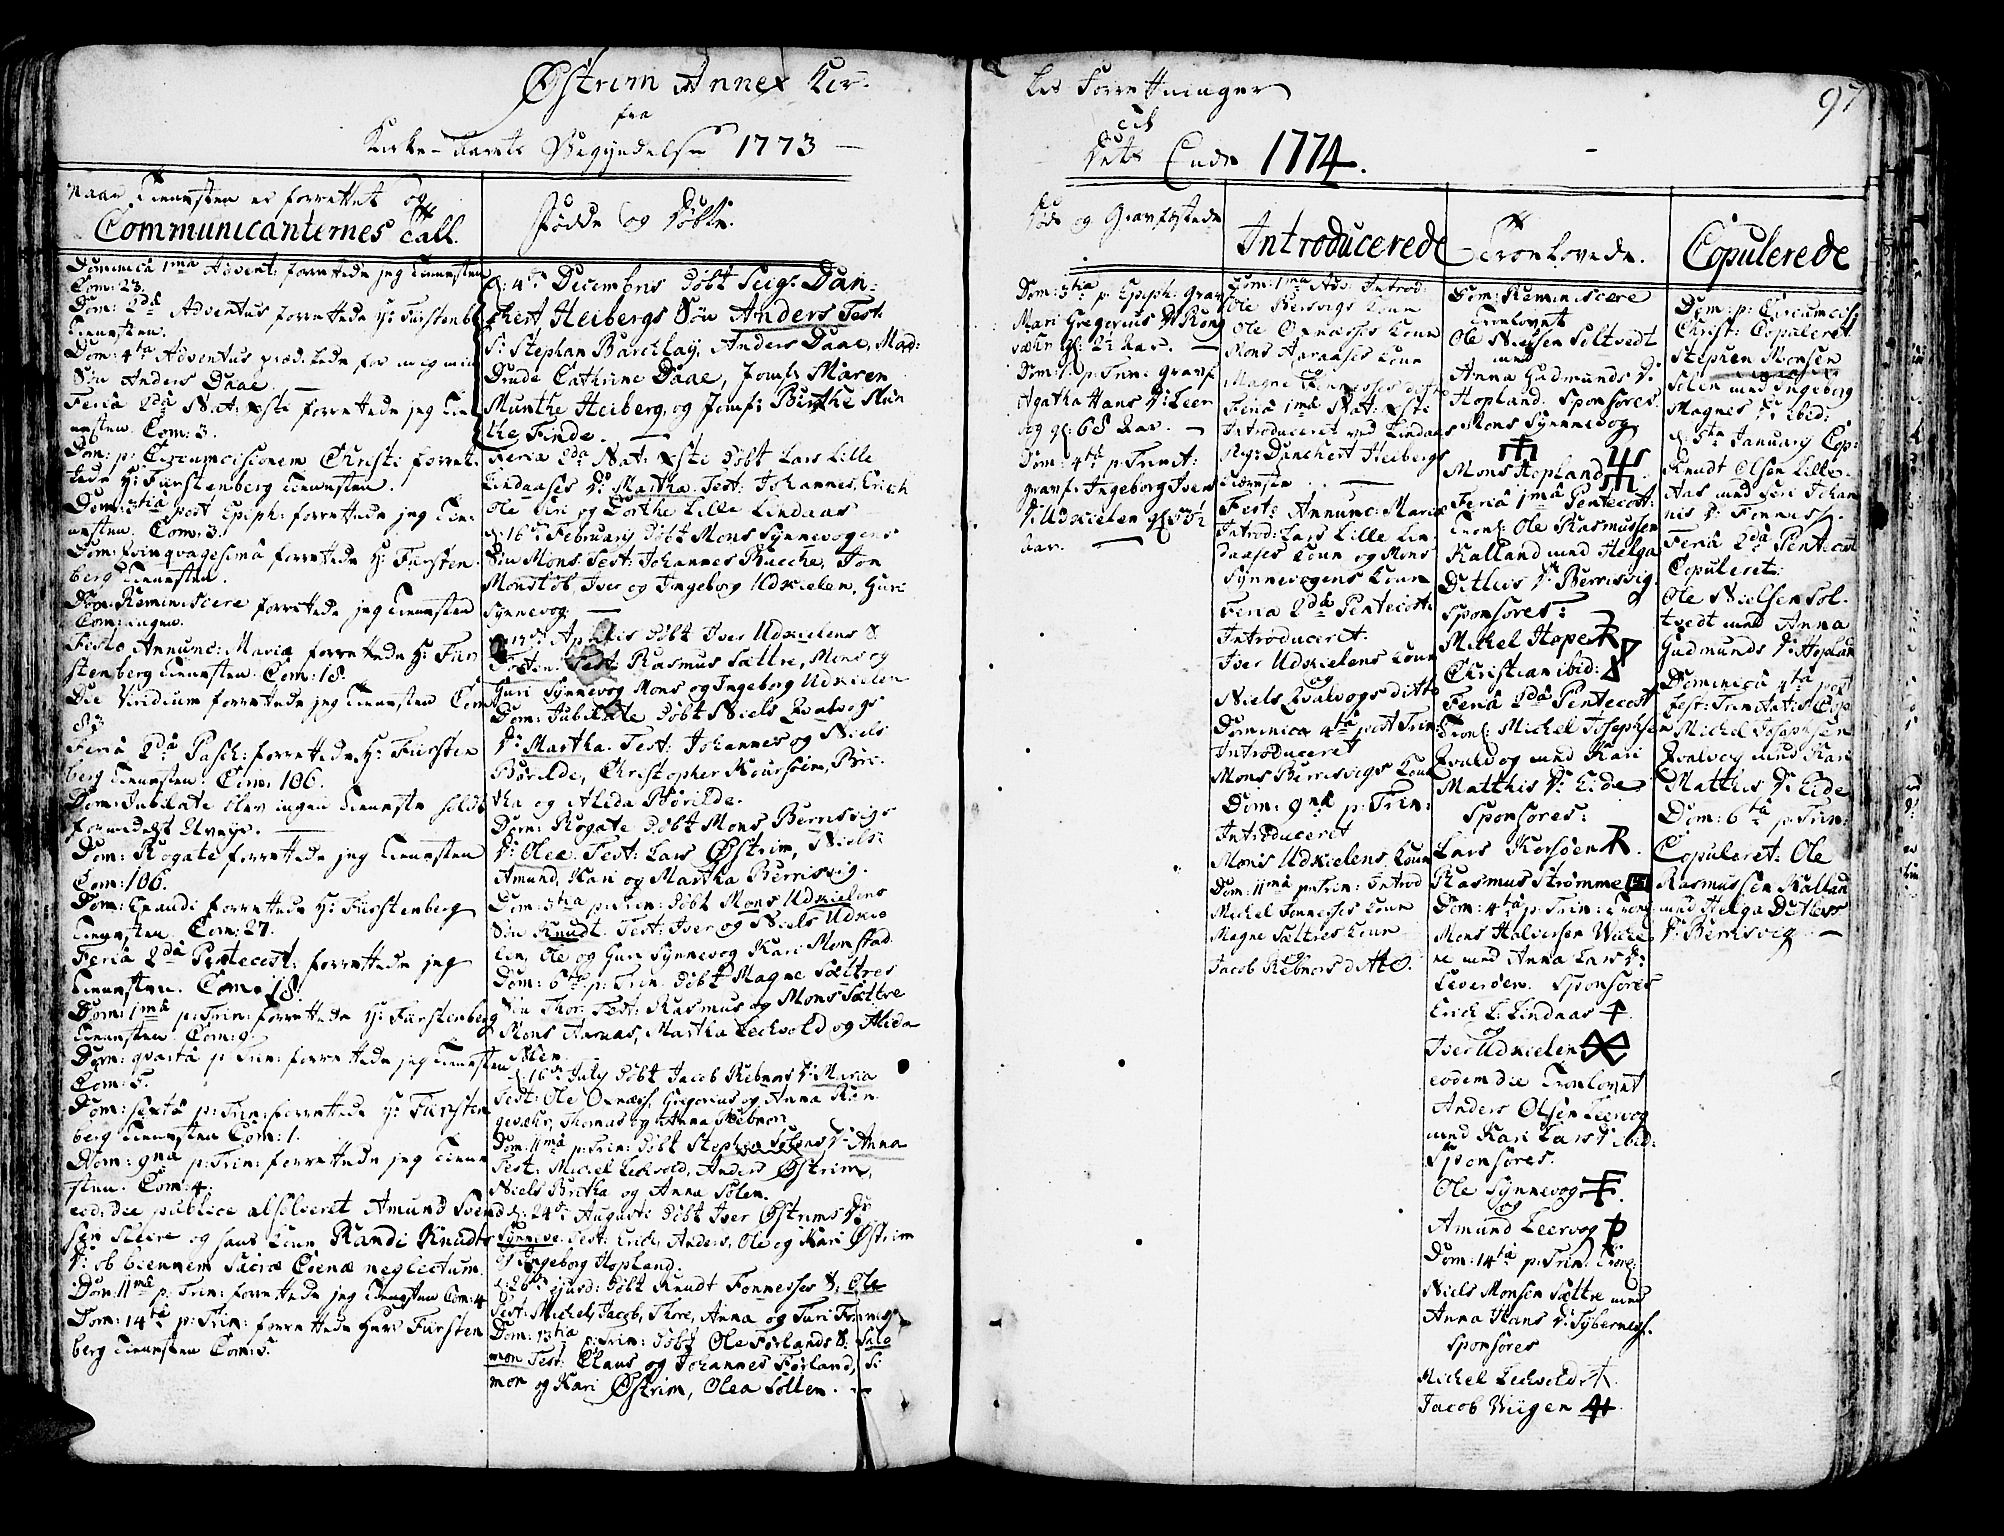 Østrim Annex Kir-
fra
Kirke-Aarets Begyndelse 1773
Naar Tienesten er forrettet og
Communicanternes Tall.
Dominica 1ma Advent: forrettede jeg Tienesten
Com: 23.
Dom: 2da Adventus forrettede Hr Fürstenb
Tienesten.
Dom: 4ta Adventus præd.kede for mig min
Søn Anders Daae.
Feria 2da Nat: Xsti forrettede jeg Tie
nesten. Com: 3.
Dom: p: Circumcisionem Christi forret-
tede Hr Fürstenberg Tienesten.
Dom: 3tia post Epiph: forrettede jeg Tie-
nesten. Com: 3.
Dom: Qvinqvagesima forrettede Hr Fürsten-
berg Tienesten.
Dom: Reminiscere forrettede jeg Tienesten
Com: ingen.
Festo Annunc: Mariæ forrettede Hr Für
stenberg Tienesten. Com: 18.
Die Viridium forrettede jeg Tienesten Com
83.
Feria 2da Pasch: forrettede Hr Fürsten
berg Tienesten. Com: 106.
Dom: Jubilate blev ingen Tieneste holdt
formedelst Uveyr.
Dom: Rogate forrettede jeg Tienesten
Com: 106.
Dom: Exaudi forrettede Hr Fürstenberg
Tienesten. Com: 27.
Feria 2da Pentecost: forrettede jeg
Tienesten. Com: 18.
Dom: 1ma p: Trin: forrettede Hr Fürstenberg
Tienesten. Com: 9.
Dom: qvarta p: Trin: forrettede jeg Tienesten
Com: 5.
Dom: sexta p: Trin: forrettede Hr Fürsten
berg Tienesten Com: 1.
Dom: 9na p: Trin: forrettede jeg Tiene
sten. Com: 4.
eod: die publice absolveret Amund Iver
sen Sleire og hans Kone Randi Knudts
Dr ob biennem Sacræ Coenæ neglectum.
Dom: 11ma p: Trin: forrettede jeg Tienesten Com: 4
Dom: 14ta p: Trin: forrettede Herr Fürsten
berg Tienesten Com: 5.
Fødde og Døbte.
d: 4de Decembris døbt Seigr Dan-
chert Heibergs Søn Anders Test:
Sr Stephan Barchlay, Anders Daae, Mad:
Drude Cathrine Daae, Jomfr Maren
Munthe Heiberg, og Jomfr Birthe Mun
the Finde.
Feria 2da Nat: Xsti døbt Lars Lille
Lindaases Dr Martha. Test: Johannes, Erich
Ole Siri og Dorthe Lille Lindaas
d: 16de February døbt Mons Synnevogens
Søn Mons. Test: Johannes Bucche, Jon
Monsløb, Iver og Ingeborg Udkielen, Guri
Synnevog.
d: 17de Aprilis døbt Iver Udkielens S.
Tosten. Test: Rasmus Sættre, Mons og
Guri Synnevog Mons og Ingeborg Udkielen
Dom: Jubilate døbt Niels Qvalvogs
Dr Martha. Test: Johannes og Niels
Børilde, Christopher Koursøin, Bri-
tha og Alida Børilde.
Dom: Rogate døbt Mons Berrisvigs
Dr Olee. Test: Lars Østrim, Niels
Amund, Kari og Martha Berrisvig.
Dom: 3tia p: Trin: døbt Mons Udkielens
Søn Knudt. Test: Iver og Niels Udkie
len, Ole og Guri Synnevog Kari Monstad.
Dom: 6ta p: Trin. døbt Magne Sættres
Søn Thor. Test: Rasmus og Mons Sættre
Mons Aaraas, Martha Lechvold og Alida
Sølen.
d: 16de July døbt Jacob Rebnors Dr Maria
Test: Ole Oxnæss, Gregorius og Anna Kon-
gevæhr, Thomas og Anna Rebnor.
Dom: 11ma p: Trin: døbt Stephen Sølens Dr Anna
Test: Michel Lechvold, Anders Østrim,
Niels Britha og Anna Sølen.
d: 24de Augusti døbt Iver Østrims Dr
Synneve. Test: Erich, Anders, Ole og Kari Østrim
og Ingeborg Hopland.
d: 26de ejusd: døbt Knudt Fonnesses S: Ole
Test: Michel, Jacob, Thore, Anna og Turi Fonness
Dom: 13tia p: Trin: døbt Ole Førlands S. Salo
mon Test: Claus og Johannes Førland, Si
mon og Kari Østrim, Olea Søllen.
kes Forretninger
til
Dets Ende 1774.
97
Døde og Gravfæstede
Dom: 3tia p: Epiph: Grav
Mari Gregorius Dr Kong
væhr gl: 2½ Aar.
Dom: 1. p: Trin: gravf
Agatha Hans Dr Leer
vig gl: 68 Aar.
Dom: 4ta p: Trinit:
gravf: Ingeborg Ivers
Dr Udkielen gl: 53½
Aar.
Introducerede
Dom: 1ma Adv: Introd:
Ole Bersvigs Kone
Ole Oxnæsses Kone
Mons Aaraases Kone
og
Magne Fonnesses ditto
Feria 1ma Nat: Xste
Introduceret ved Lindaas
Sgr: Danchert Heibergs
Kiæreste.
Fest: Annunc: Mariæ
Introd: Lars Lille Lin
daases Kone og Mons
Synnevogens Kone
Feria 2da Pentecost:
Introduceret.
Iver Udkielens Kone
og
Niels Qvalvogs ditto
Dominica 4ta post Trin
Introduceret
Mons Berrisvigs Kone
Dom: 9na p: Trin:
Introduceret
Mons Udkielens Kone
Dom: 11ma p: Trin: Introd
Michel Fonnesses Kone
Magne Sættres Kone
og
Jacob Rebnors ditto.
Troelovede.
Dom: Reminiscere
Troelovet
Ole Nielsen Soltvedt
med
Anna Gudmunds Dr
Hopland. Sponsores
Mons Synnevog
Mons Hopland
Feria 1ma Pentecost.
Trol: Ole Rasmussen
Kalland med Helga
Ditlevs Dr Berrisvig.
Sponsores:
Michel Hope
Christian ibid:
Feria 2da Pentecost
Trol: Michel Josephsen
Qvalvog med Kari
Matthis Dr Eide
Sponsores:
Lars Korsøen
Rasmus Strømme
Dom: 4ta p: Trin: Trol:
Mons Halversen Wike
ne med Anna Lars Dr
Leversen. Sponsores
Erich L. Lindaas
og
Iver Udkielen
eodem die Troelovet
Anders Olsen Leervog
med Kari Lars Dr ibid:
Sponsores.
Ole Synnevog
og
Amund Leervog
Dom: 14ta p: Trin. Trol:
Niels Monsen Sættre med
Anna Hans Dr Sybernes.
Sponsores
Michel Lechvold
Jacob Wiigen
Copulerede
Dom: p: Circumcis:
Christi Copuleret
Stephen Monsen
Sølen med Ingeborg
Magnes Dr ibid:
d: 5te January Cop:
Knudt Olsen Lille-
Aas med Siri Johan
nis Dr Fonness.
Feria 2da Pentecost
Copuleret:
Ole Nielsen Sol-
tvedt med Anna
Gudmunds Dr Hoplan
Dominica 4ta post
fest: Trinitatis Cop
Michel Josephsen
Qvalvog med Kari
Matthis Dr Eide
Dom: 6ta p: Trin:
Copuleret: Ole
Rasmussen Kalland
med Helga Ditlevs
Dr Berrisvig